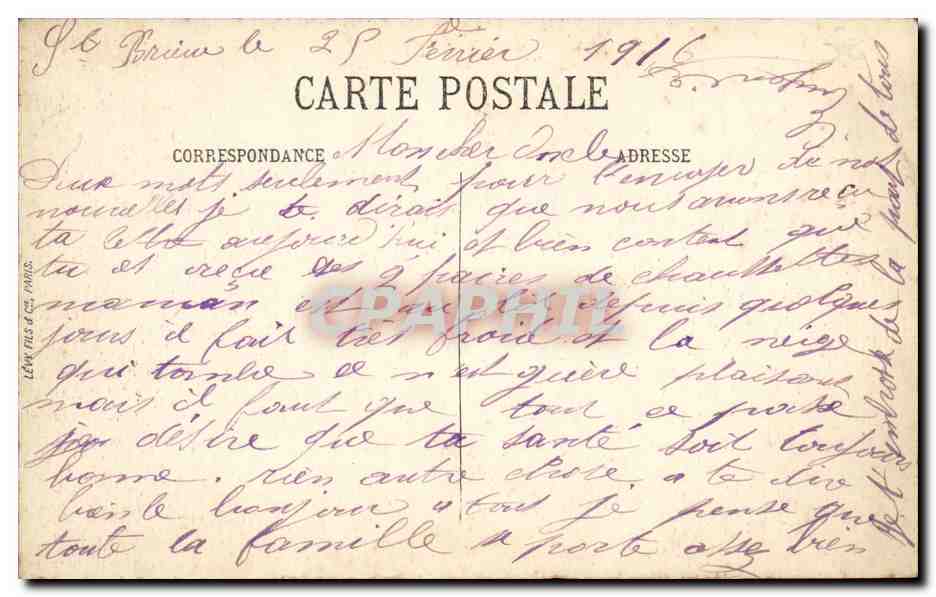 St Brieuc le 25 Février 1916
CARTE POSTALE
CORRESPONDANCE
ADRESSE
Mon cher Oncle
Deux mots seulement pour t'envoyer de nos
nouvelles je te dirait que nous avons reçu
ta lettre aujourd'hui et bien content que
tu et reçue des 9 paires de chaussettes
maman est depuis quelques
jours il fait très froid et la neige
qui tombe ce n'est guère plaisant
mais il faut que tout ce passe
je désire que ta santé soit toujours
bonne. rien autre chose a te dire
bien le bonjour a tous je pense que
toute la famille se porte assez bien
Je t'embrasse de la part de tous
LÉVY FILS & Cie, PARIS.
CPAPHIL